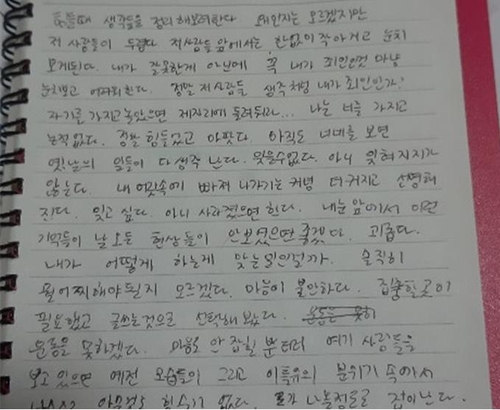 힘들때 생각들을 정리 해보려한다 왜인지는 모르겠지만
저 사람들이 두렵다 저사람들 앞에서는, 한없이 작아지고 눈치
보게된다. 내가 잘못한게 아닌데 꼭 내가 죄인인것 마냥
눈치보고 어려워한다. 정말 저사람들 생각처럼 내가 죄인인가?
자기를 가지고 놀았으면 제자리에 돌려놔라... 나는 너를 가지고
논적없다. 정말 힘들었고 아팠다 아직도 너네를 보면
옛날의 일들이 다 생각 난다. 잊을수없다. 아니 잊혀지지가
않는다. 내 머릿속에 빠져 나가기는 커녕 더 커지고 선명해
진다. 잊고 싶다. 아니 사라졌으면 한다. 내눈 앞에서 이런
기억들이 날 모든 현상들이 안보였으면 좋겠다. 괴롭다.
내가 어떻게 하는게 맞는일인걸까. 솔직히
뭘 어찌해야될지 모르겠다. 마음이 불안하다. 집중할곳이
필요했고 글쓰는것으로 선택해 봤다.
운동을 못하겠다. 마음도 안 잡힐 뿐더러 여기 사람들을
보고 있으면 예전 모습들이 그리고 이특유의 분위기 속에서
아무것도 할수가 없다.